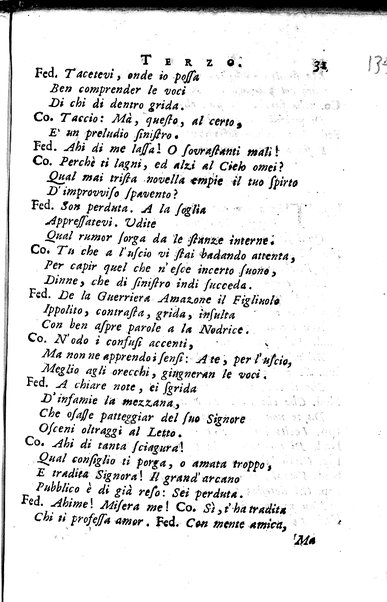 TERZO. 33 133
Fed. Tacetevi, onde io poſſa
Ben comprender le voci
Di chi di dentro grida.
Co. Taccio: Mà, queſto, al certo,
E' un preludio ſiniſtro.
Fed. Ahi di me laſſa! O ſovraſtanti mali!
Co. Perchè ti lagni, ed alzi al Cielo omei?
Qual mai triſta novella empie il tuo ſpirto
D'improvviſo ſpavento?
Fed. Son perduta. A la ſoglia
Appreſſatevi. Udite
Qual rumor ſorga da le ſtanze interne.
Co. Tu che a l'uſcio vi ſtai badando attenta,
Per capir quel che n'eſce incerto ſuono,
Dinne, che di ſiniſtro indi ſucceda.
Fed. De la Guerriera Amazone il Figliuolo
Ippolito, contraſta, grida, inſulta
Con ben aſpre parole a la Nodrice.
Co. N'odo i confuſi accenti,
Ma non ne apprendo i ſenſi: A te, per l'uſcio,
Meglio agli orecchi, giugneran le voci.
Fed. A chiare note, ei ſgrida
D'infamie la mezzana,
Che oſaſſe patteggiar del ſuo Signore
Oſceni oltraggi al Letto.
Co. Ahi di tanta ſciagura!
Qual conſiglio ti porga, o amata troppo,
E tradita Signora! Il grand'arcano
Pubblico è di già reſo: Sei perduta.
Fed. Ahime! Miſera me! Co. Sì, t'ha tradita
Chi ti profeſſa amor. Fed. Con mente amica,
Ma